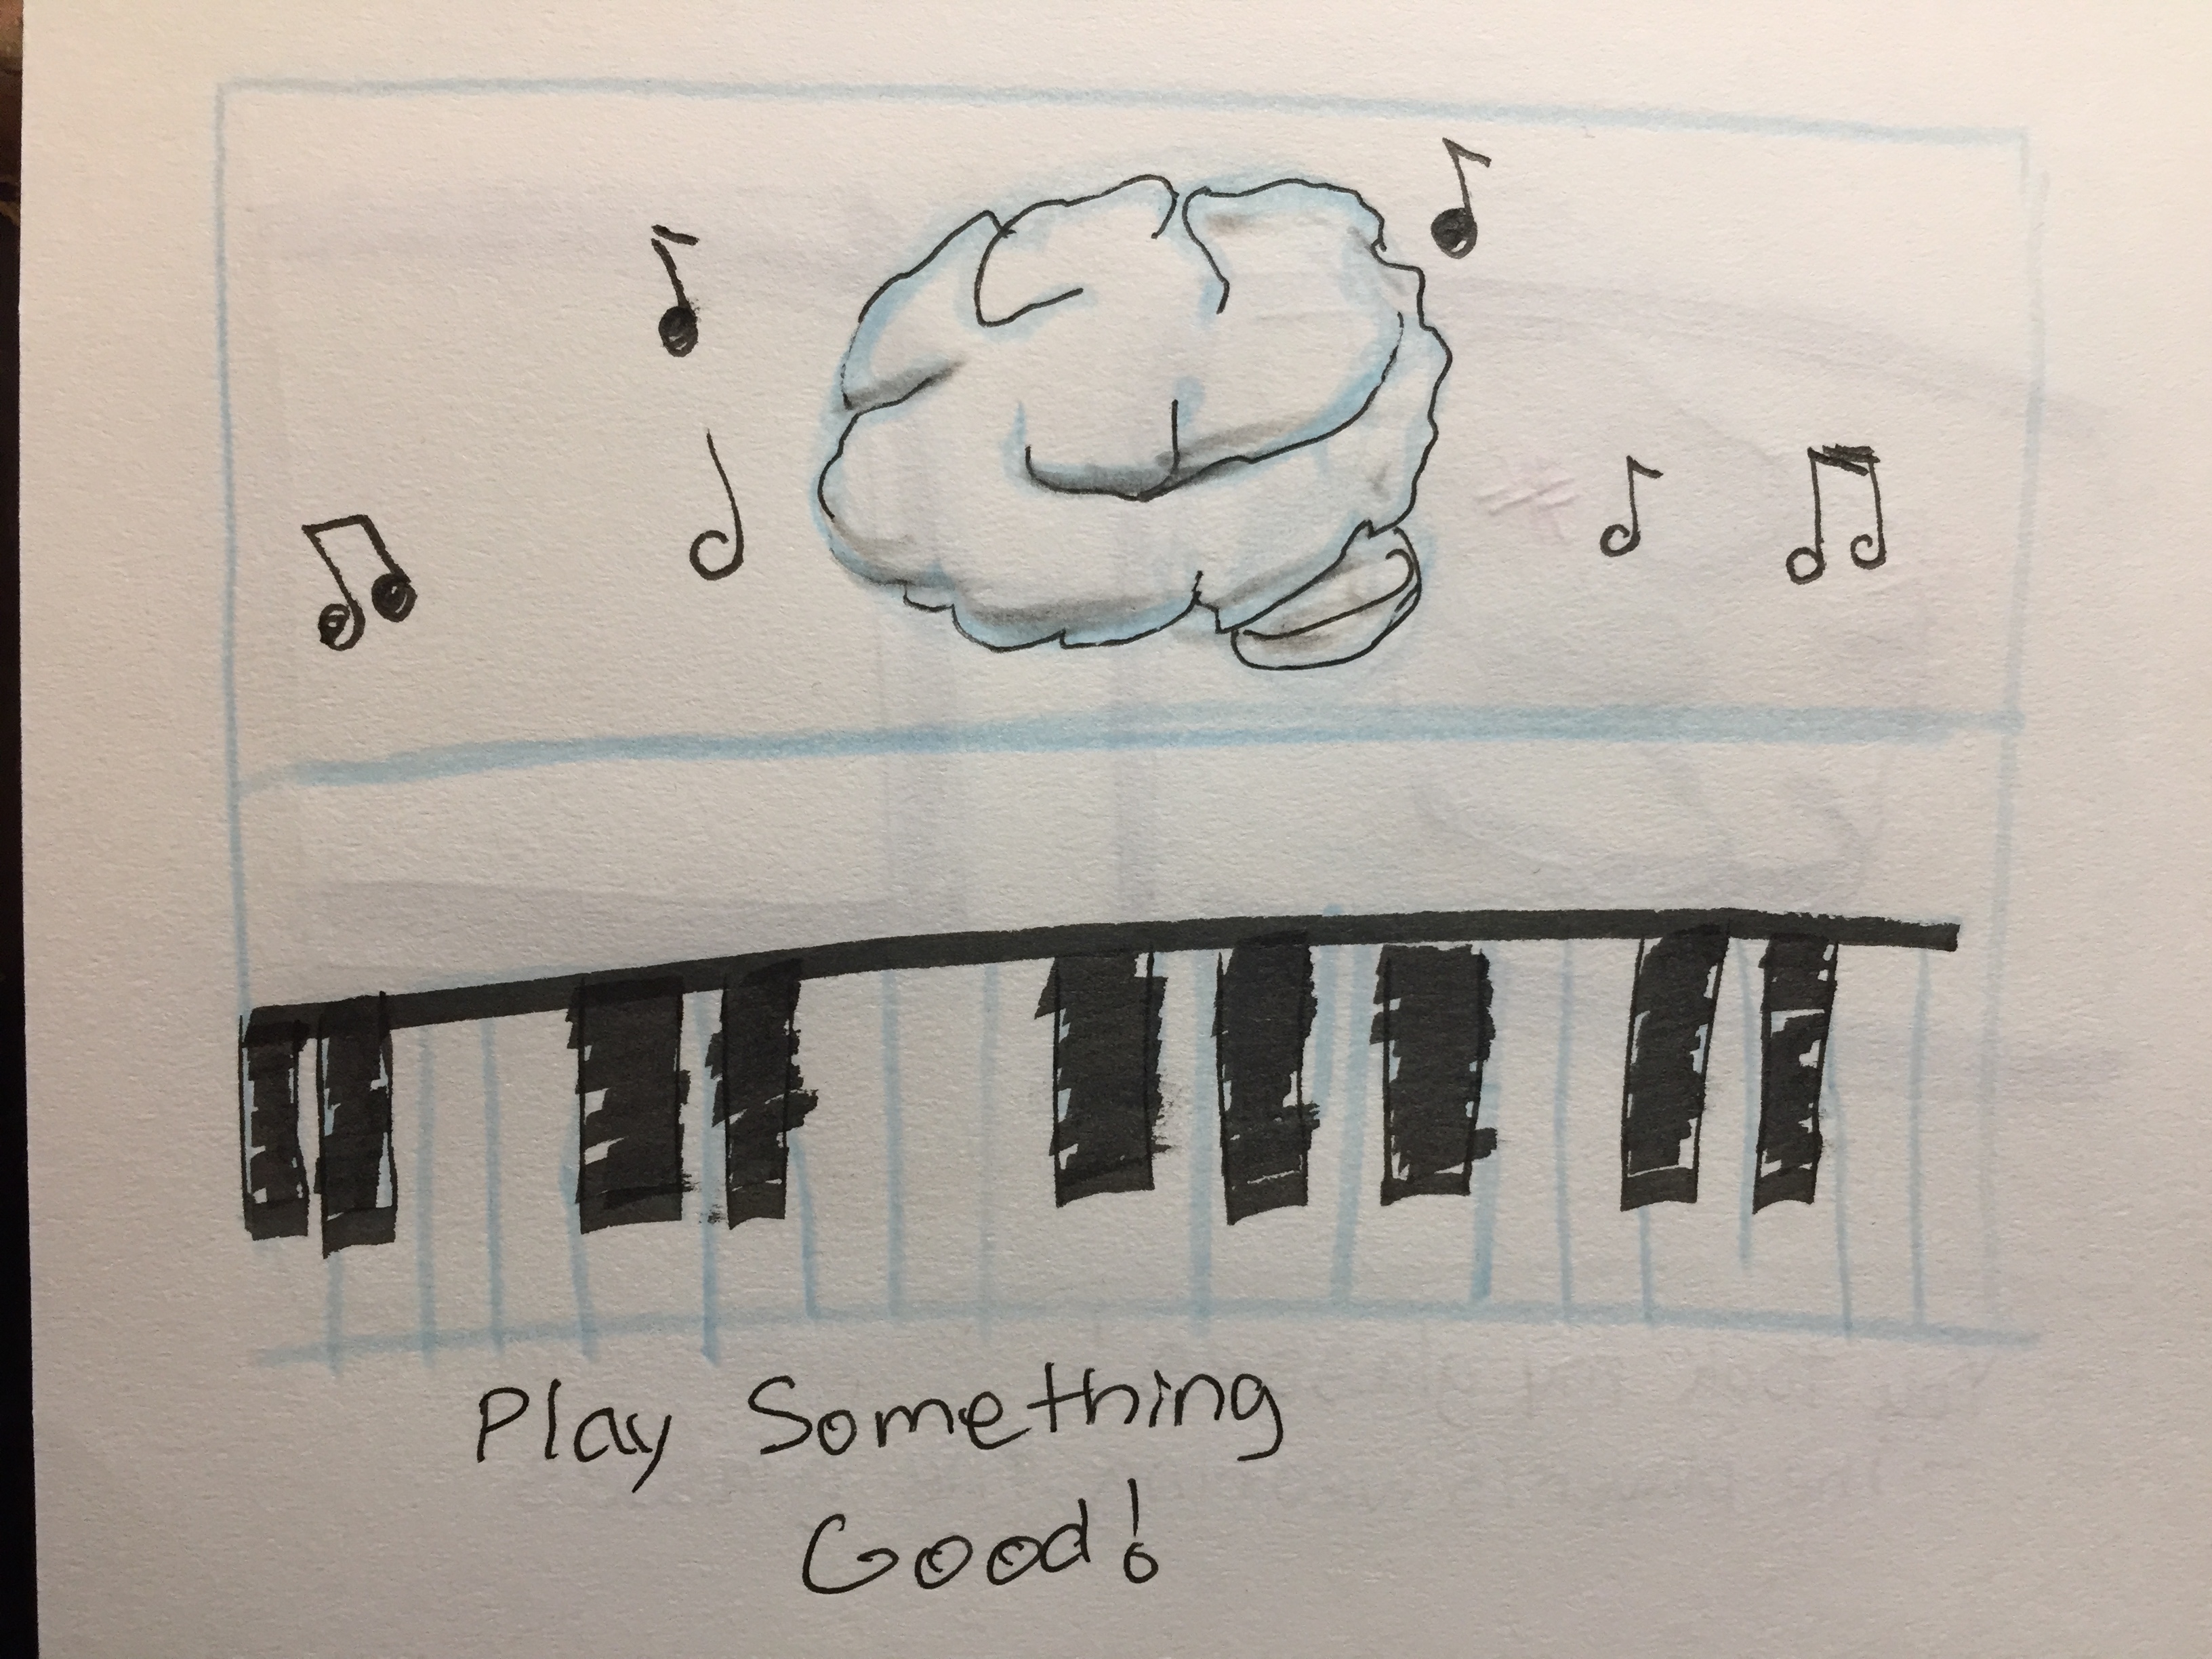 Play Something
Good!